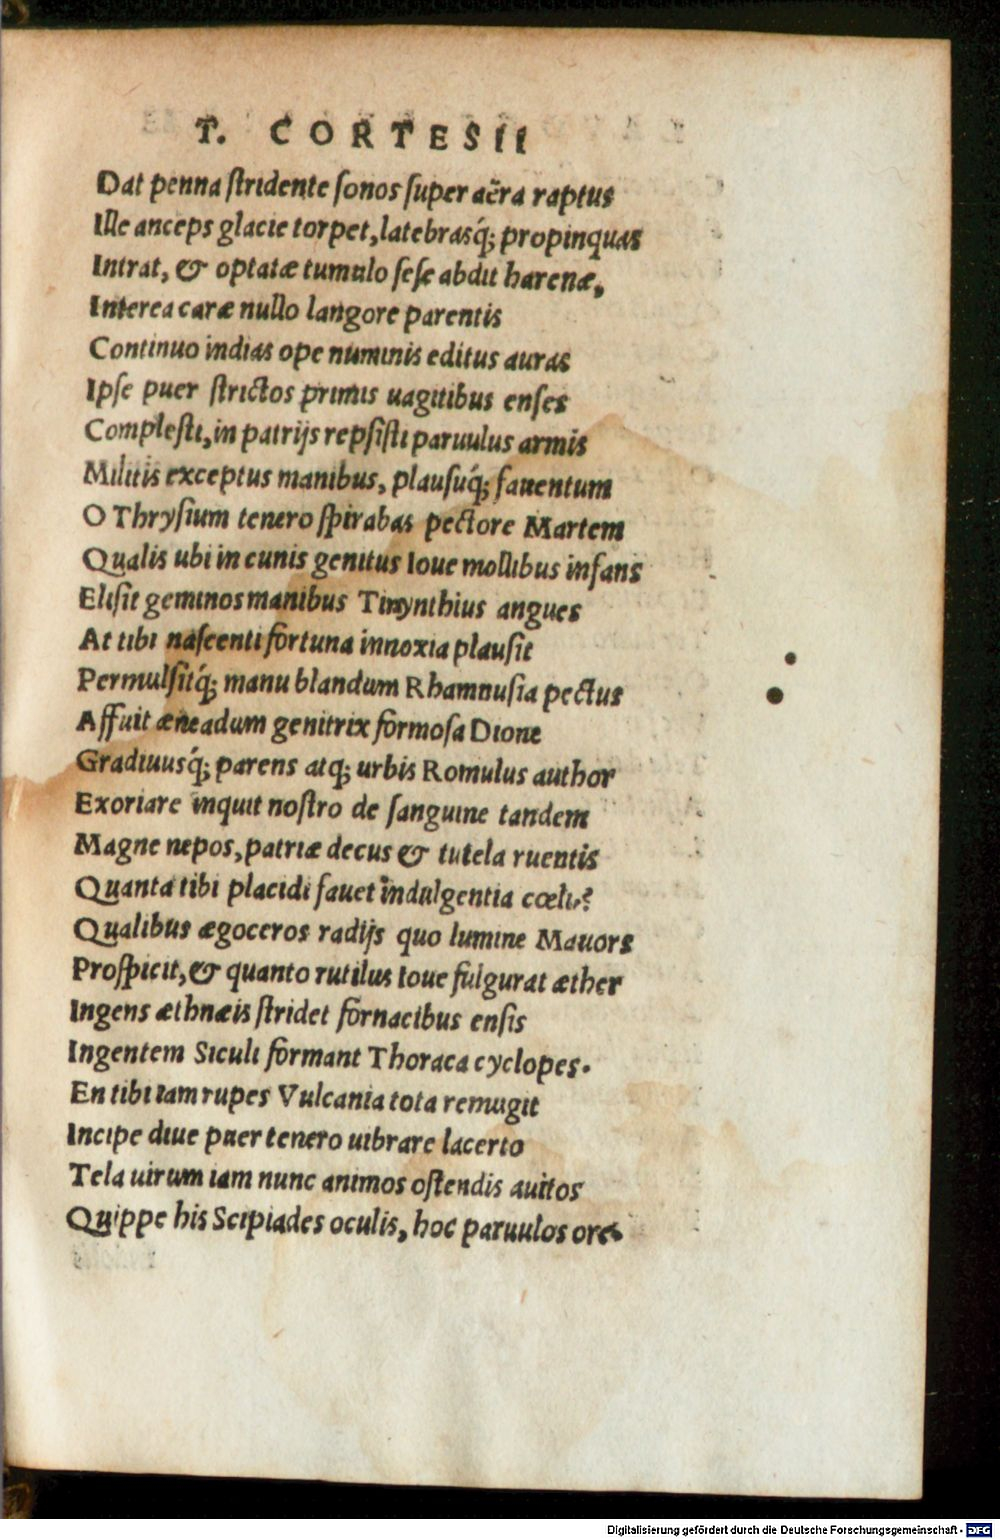 T. CORTESII
Dat penna stridente sonos super aëra raptus
Ille anceps glacie torpet, latebrasq́; propinquas
Intrat, & optatæ tumulo sese abdit harenæ,
Interea caræ nullo langore parentis
Continuo indias ope numinis editus auras
Ipse puer strictos primis uagitibus enses
Complesti, in patrijs repsisti paruulus armis
Militis exceptus manibus, plausuq́; fauentum
O Thrysium tenero spirabas pectore Martem
Qualis ubi in cunis genitus Ioue mollibus infans
Elisit geminos manibus Tirynthius angues
At tibi nascenti fortuna innoxia plausit
Permulsitq́; manu blandum Rhamnusia pectus
Affuit æneadum genitrix formosa Dione
Gradiuusq́; parens atq; urbis Romulus author
Exoriare inquit nostro de sanguine tandem
Magne nepos, patriæ decus & tutela ruentis
Quanta tibi placidi fauet indulgentia cœli?
Qualibus ægoceros radijs quo lumine Mauors
Prospicit, & quanto rutilus Ioue fulgurat æther
Ingens æthnæis stridet fornacibus ensis
Ingentem Siculi formant Thoraca cyclopes.
En tibi iam rupes Vulcania tota remugit
Incipe diue puer tenero uibrare lacerto
Tela uirum iam nunc animos ostendis auitos
Quippe his Scipiades oculis, hoc paruulos ore
Digitalisierung gefördert durch die Deutsche Forschungsgemeinschaft - DFG